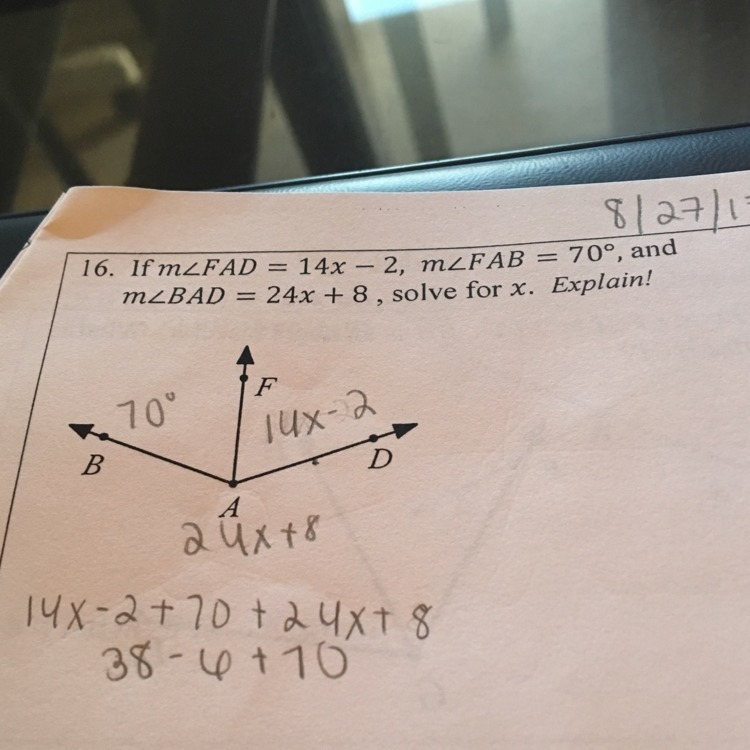 8/27/1
16. If m∠FAD = 14x − 2, m∠FAB = 70°, and
m∠BAD = 24x + 8 , solve for x. Explain!
70°
F
14x-2
B
D
A
24x+8
14x-2+70+24x+8
38-6+70